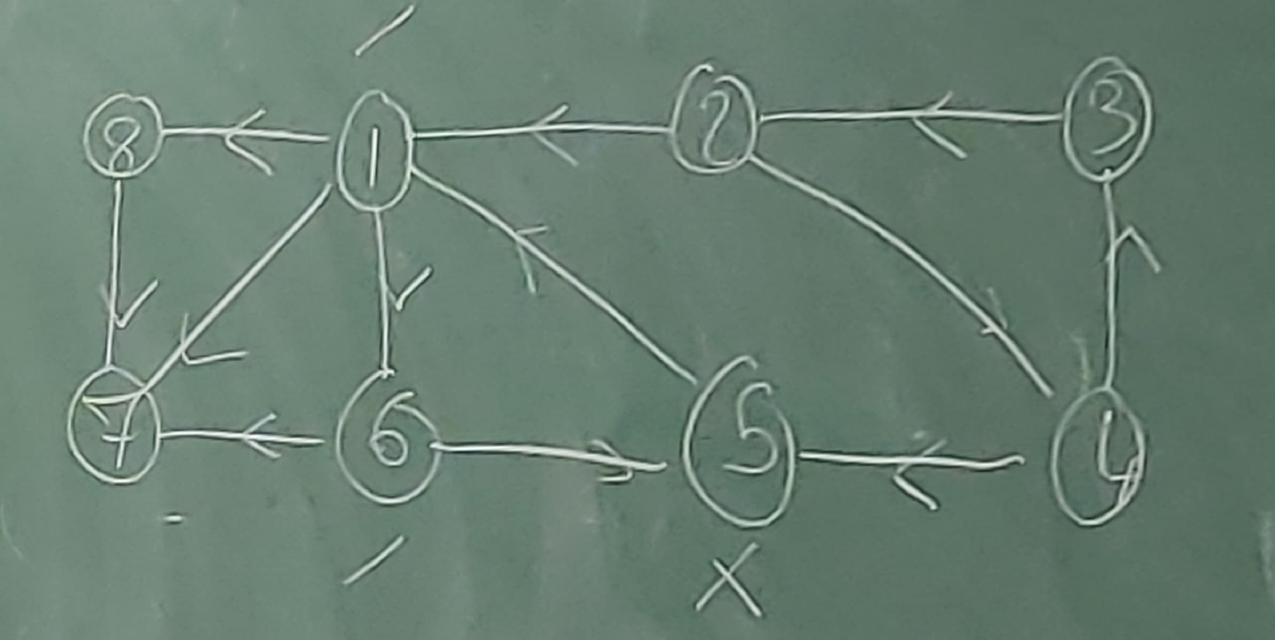 8 1 2 3
7 6 5 4
X